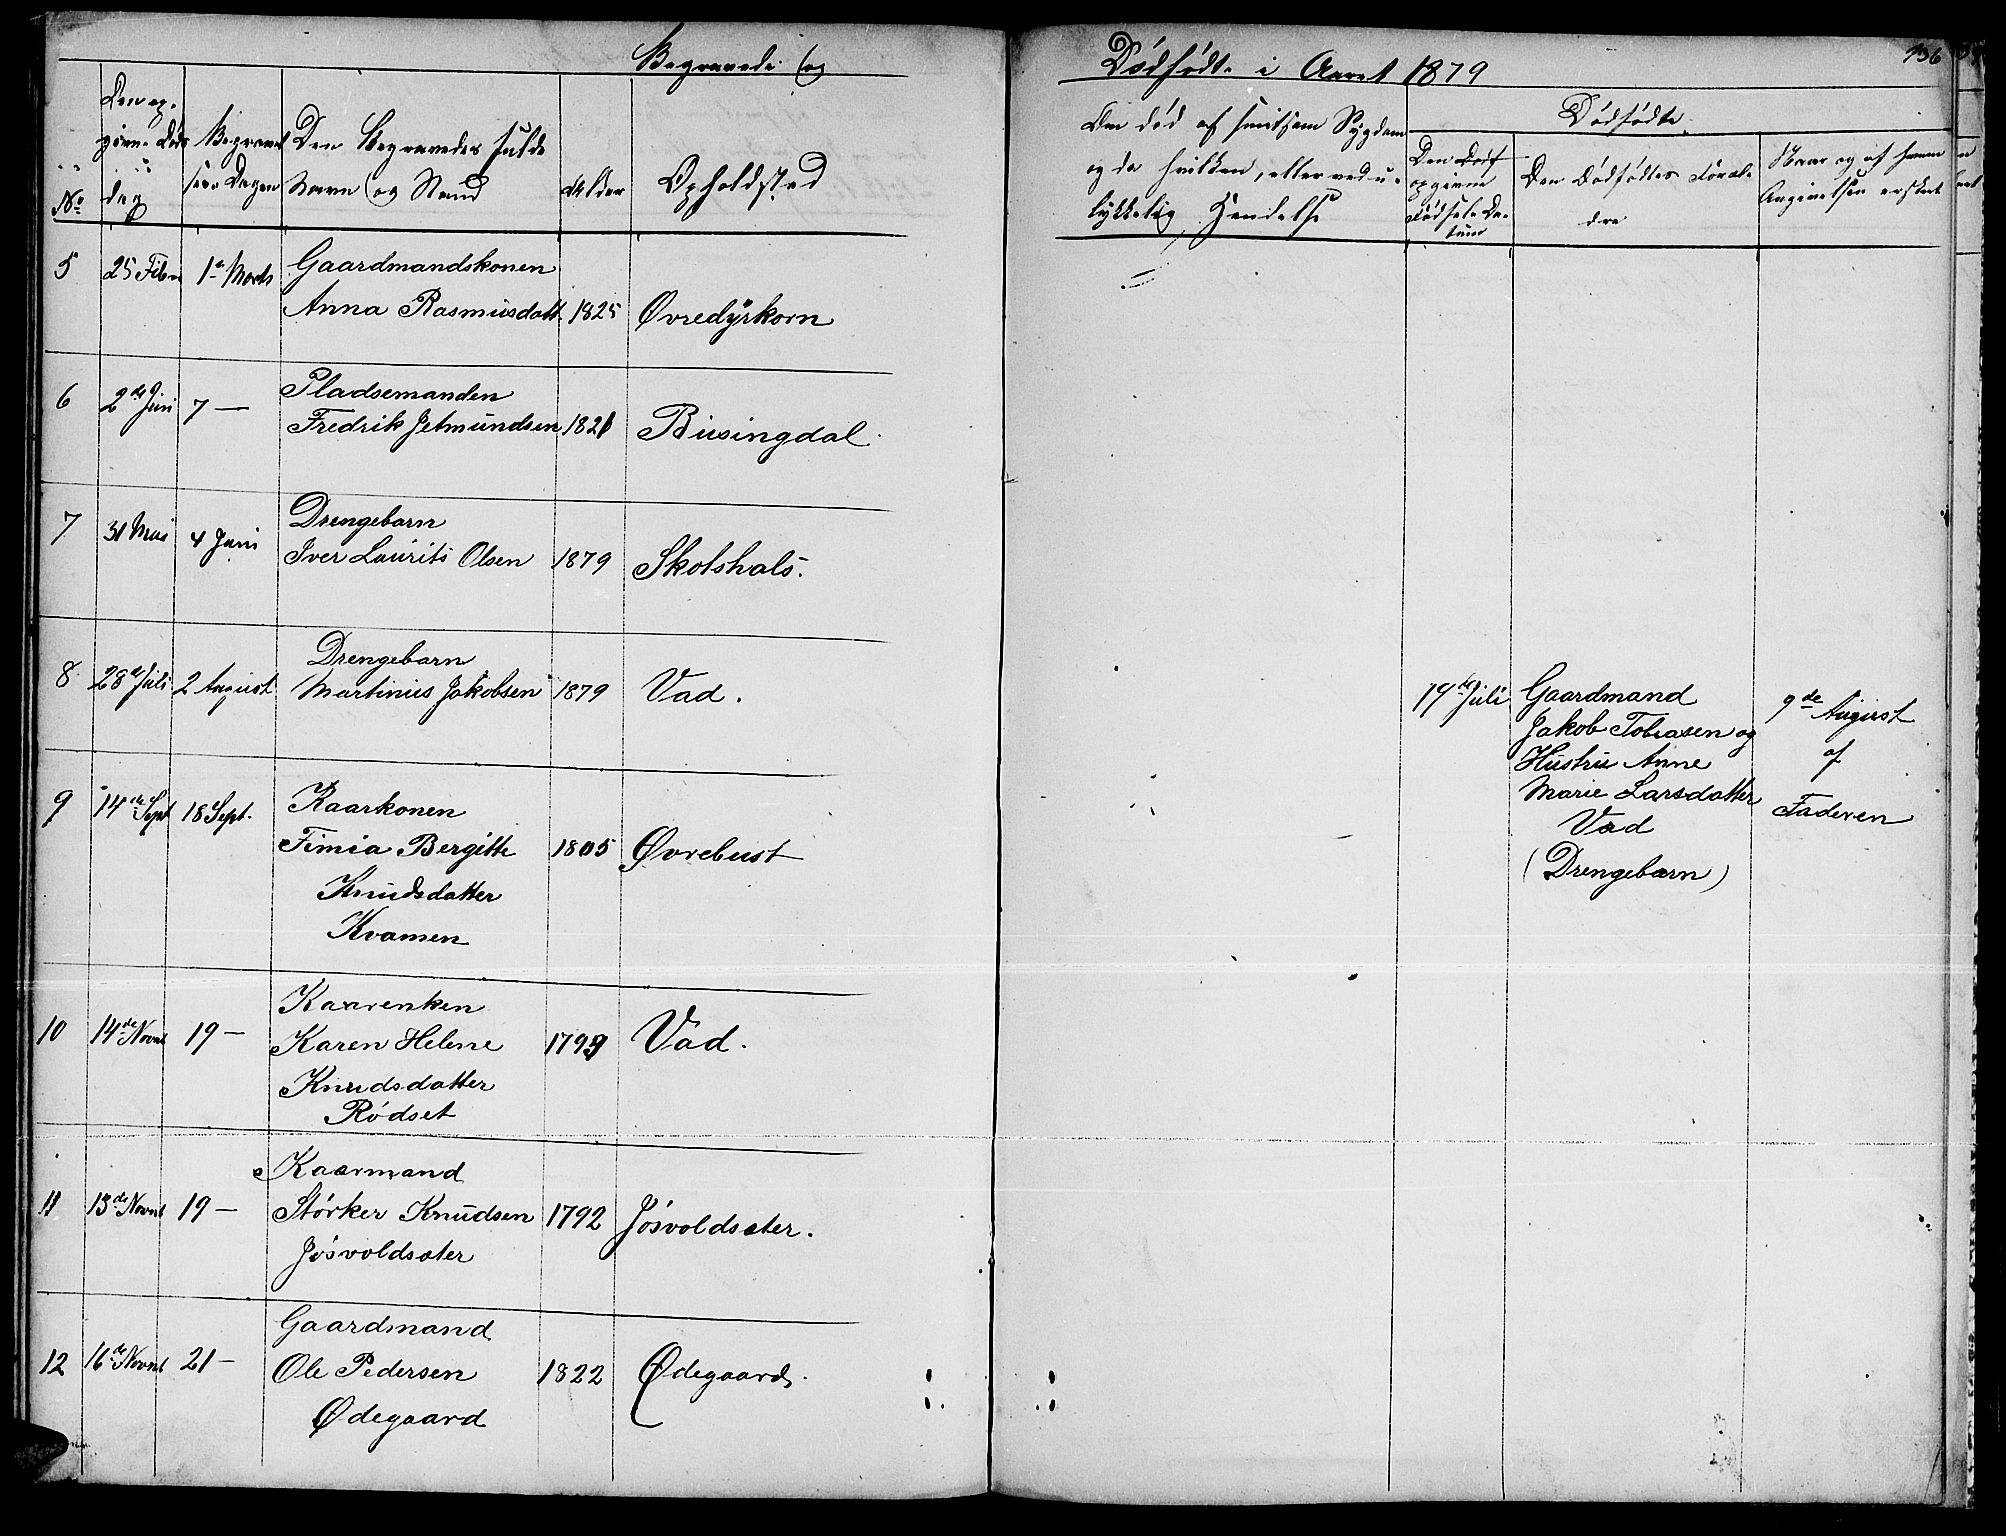 Begravede og
Dødfødte i Aaret 1879
136
No
Den op-
givne Døds
dag
Begravel
sens Dagen
Den Begravedes fulde
Navn og Stand
Alder
Opholdsted
Om død af smitsom Sygdom
og da hvilken, eller ved u-
lykkelig Hendelse
Dødfødte
opgivne
Fødsels Da-
tum
Den Dødfødtes Foræl-
dre
Naar og af hvem
Angivelsen er skeet
5 25 Febr 1ste Marts Gaardmandskonen
Anna Rasmusdatt. 1825 Øvredyrkorn
6 2de Juni 7 — Pladsemanden
Fredrik Jetmundsen 1821 Busingdal.
7 31 Mai 4 Juni Drengebarn
Iver Laurits Olsen 1879 Skotshals.
8 28de Juli 2 August Drengebarn
Martinius Jakobsen 1879 Vad.
19de Juli Gaardmand
Jakob Tobiasen og
Hustru Anne
Marie Larsdatter
Vad
(Drengebarn)
9de August
af
Faderen
9 14de Sept 18 Sept. Kaarkonen
Fimia Bergitte 1805 Øvrebust
Knudsdatter
Kvamen
10 14de Novmb 19 — Kaarenken
Karen Helene 1799 Vad.
Knudsdatter
Rødset
11 13de Novmb 19 — Kaarmand
Størker Knudsen 1792 Jøsvoldsæter.
Jøsvoldsæter
12 16de Novmb 21 — Gaardmand
Ole Pedersen 1822 Ødegaard.
Ødegaard